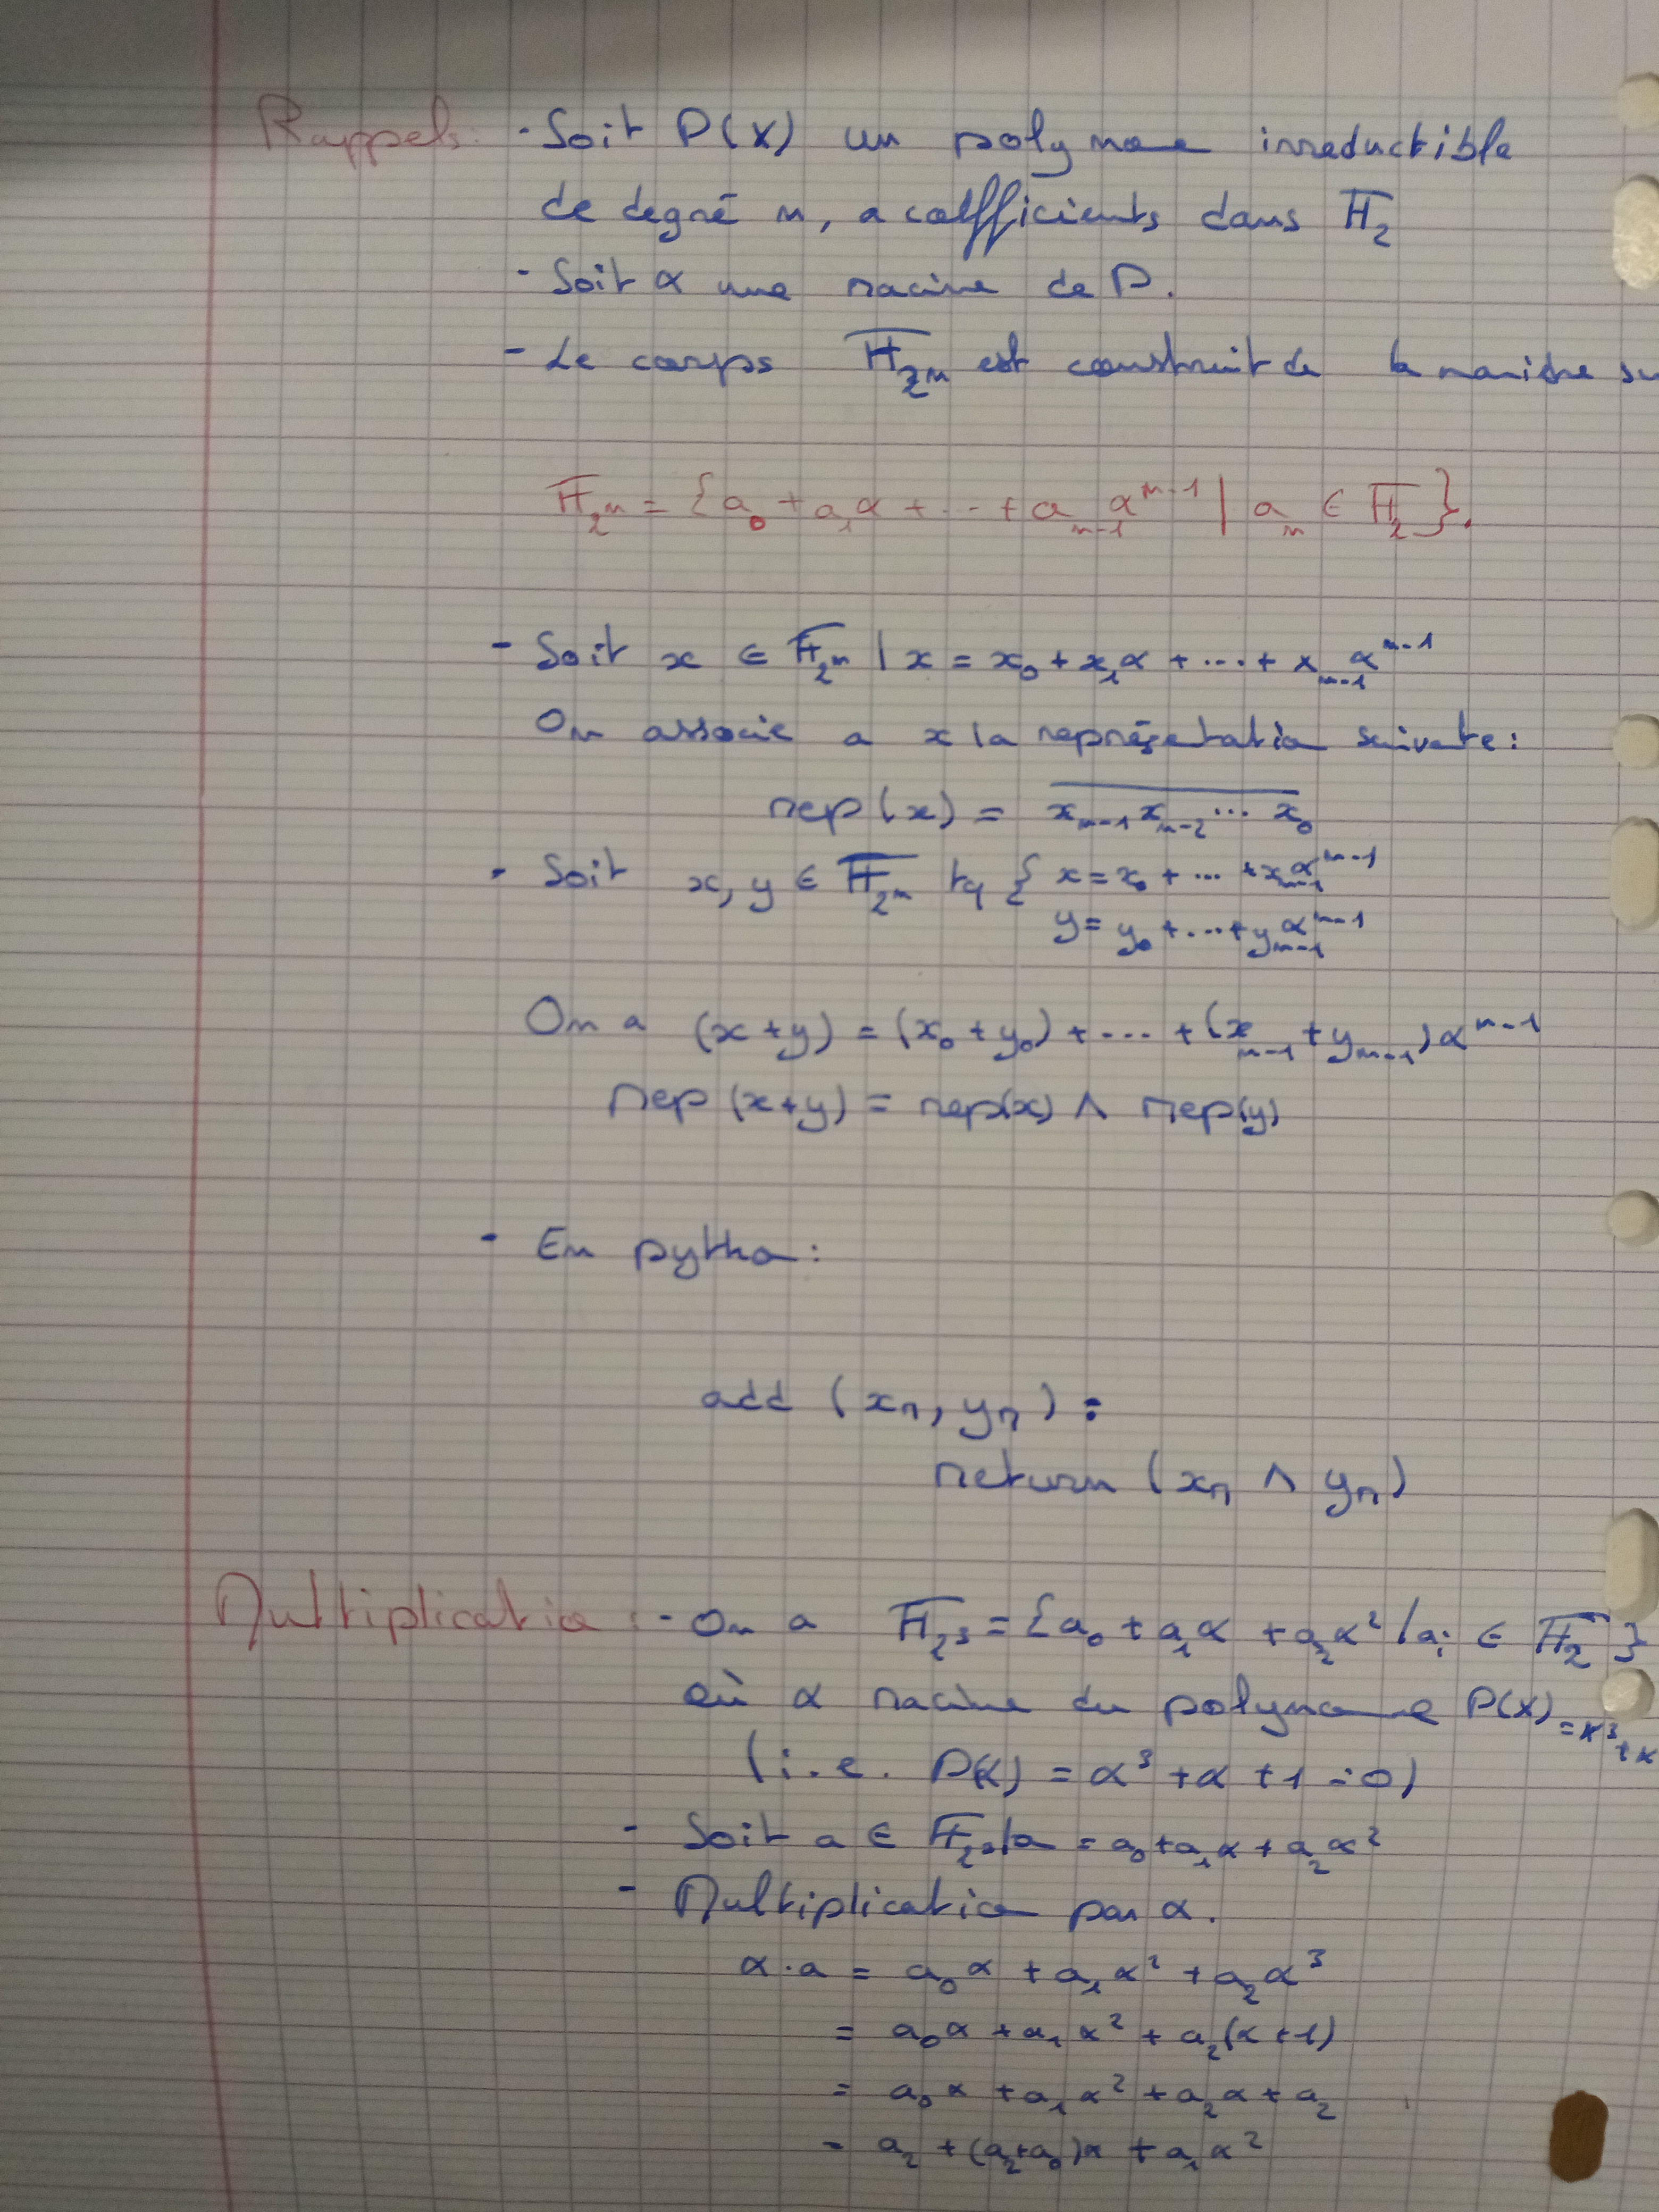 Rappels: - Soit P(X) un polynome irreductible
de degré n, a coefficients dans F₂
- Soit α une racine de P.
- Le corps F₂ⁿ est construit de la manière su
F₂ⁿ = {a₀ + a₁α + ... + aₙ₋₁αⁿ⁻¹ | aₙ ∈ F₂}.
- Soit x ∈ F₂ⁿ | x = x₀ + x₁α + ... + xₙ₋₁αⁿ⁻¹
On associe a x la représentation suivante:
rep(x) = xₙ₋₁xₙ₋₂ ... x₀
- Soit x, y ∈ F₂ⁿ tq { x = x₀ + ... + xₙ₋₁αⁿ⁻¹
y = y₀ + ... + yₙ₋₁αⁿ⁻¹
On a (x+y) = (x₀+y₀) + ... + (xₙ₋₁ + yₙ₋₁)αⁿ⁻¹
rep(x+y) = rep(x) ∧ rep(y)
- En python:
add (xᵣ, yᵣ):
return (xᵣ ∧ yᵣ)
Multiplication: - On a F₂³ = {a₀ + a₁α + a₂α² / aᵢ ∈ F₂}
où α racine du polynome P(X) = X³ + X
(i.e. P(α) = α³ + α + 1 = 0)
- Soit a ∈ F₂³ / a = a₀ + a₁α + a₂α²
- Multiplication par α.
α.a = a₀α + a₁α² + a₂α³
= a₀α + a₁α² + a₂(α+1)
= a₀α + a₁α² + a₂α + a₂
= a₂ + (a₂+a₀)α + a₁α²